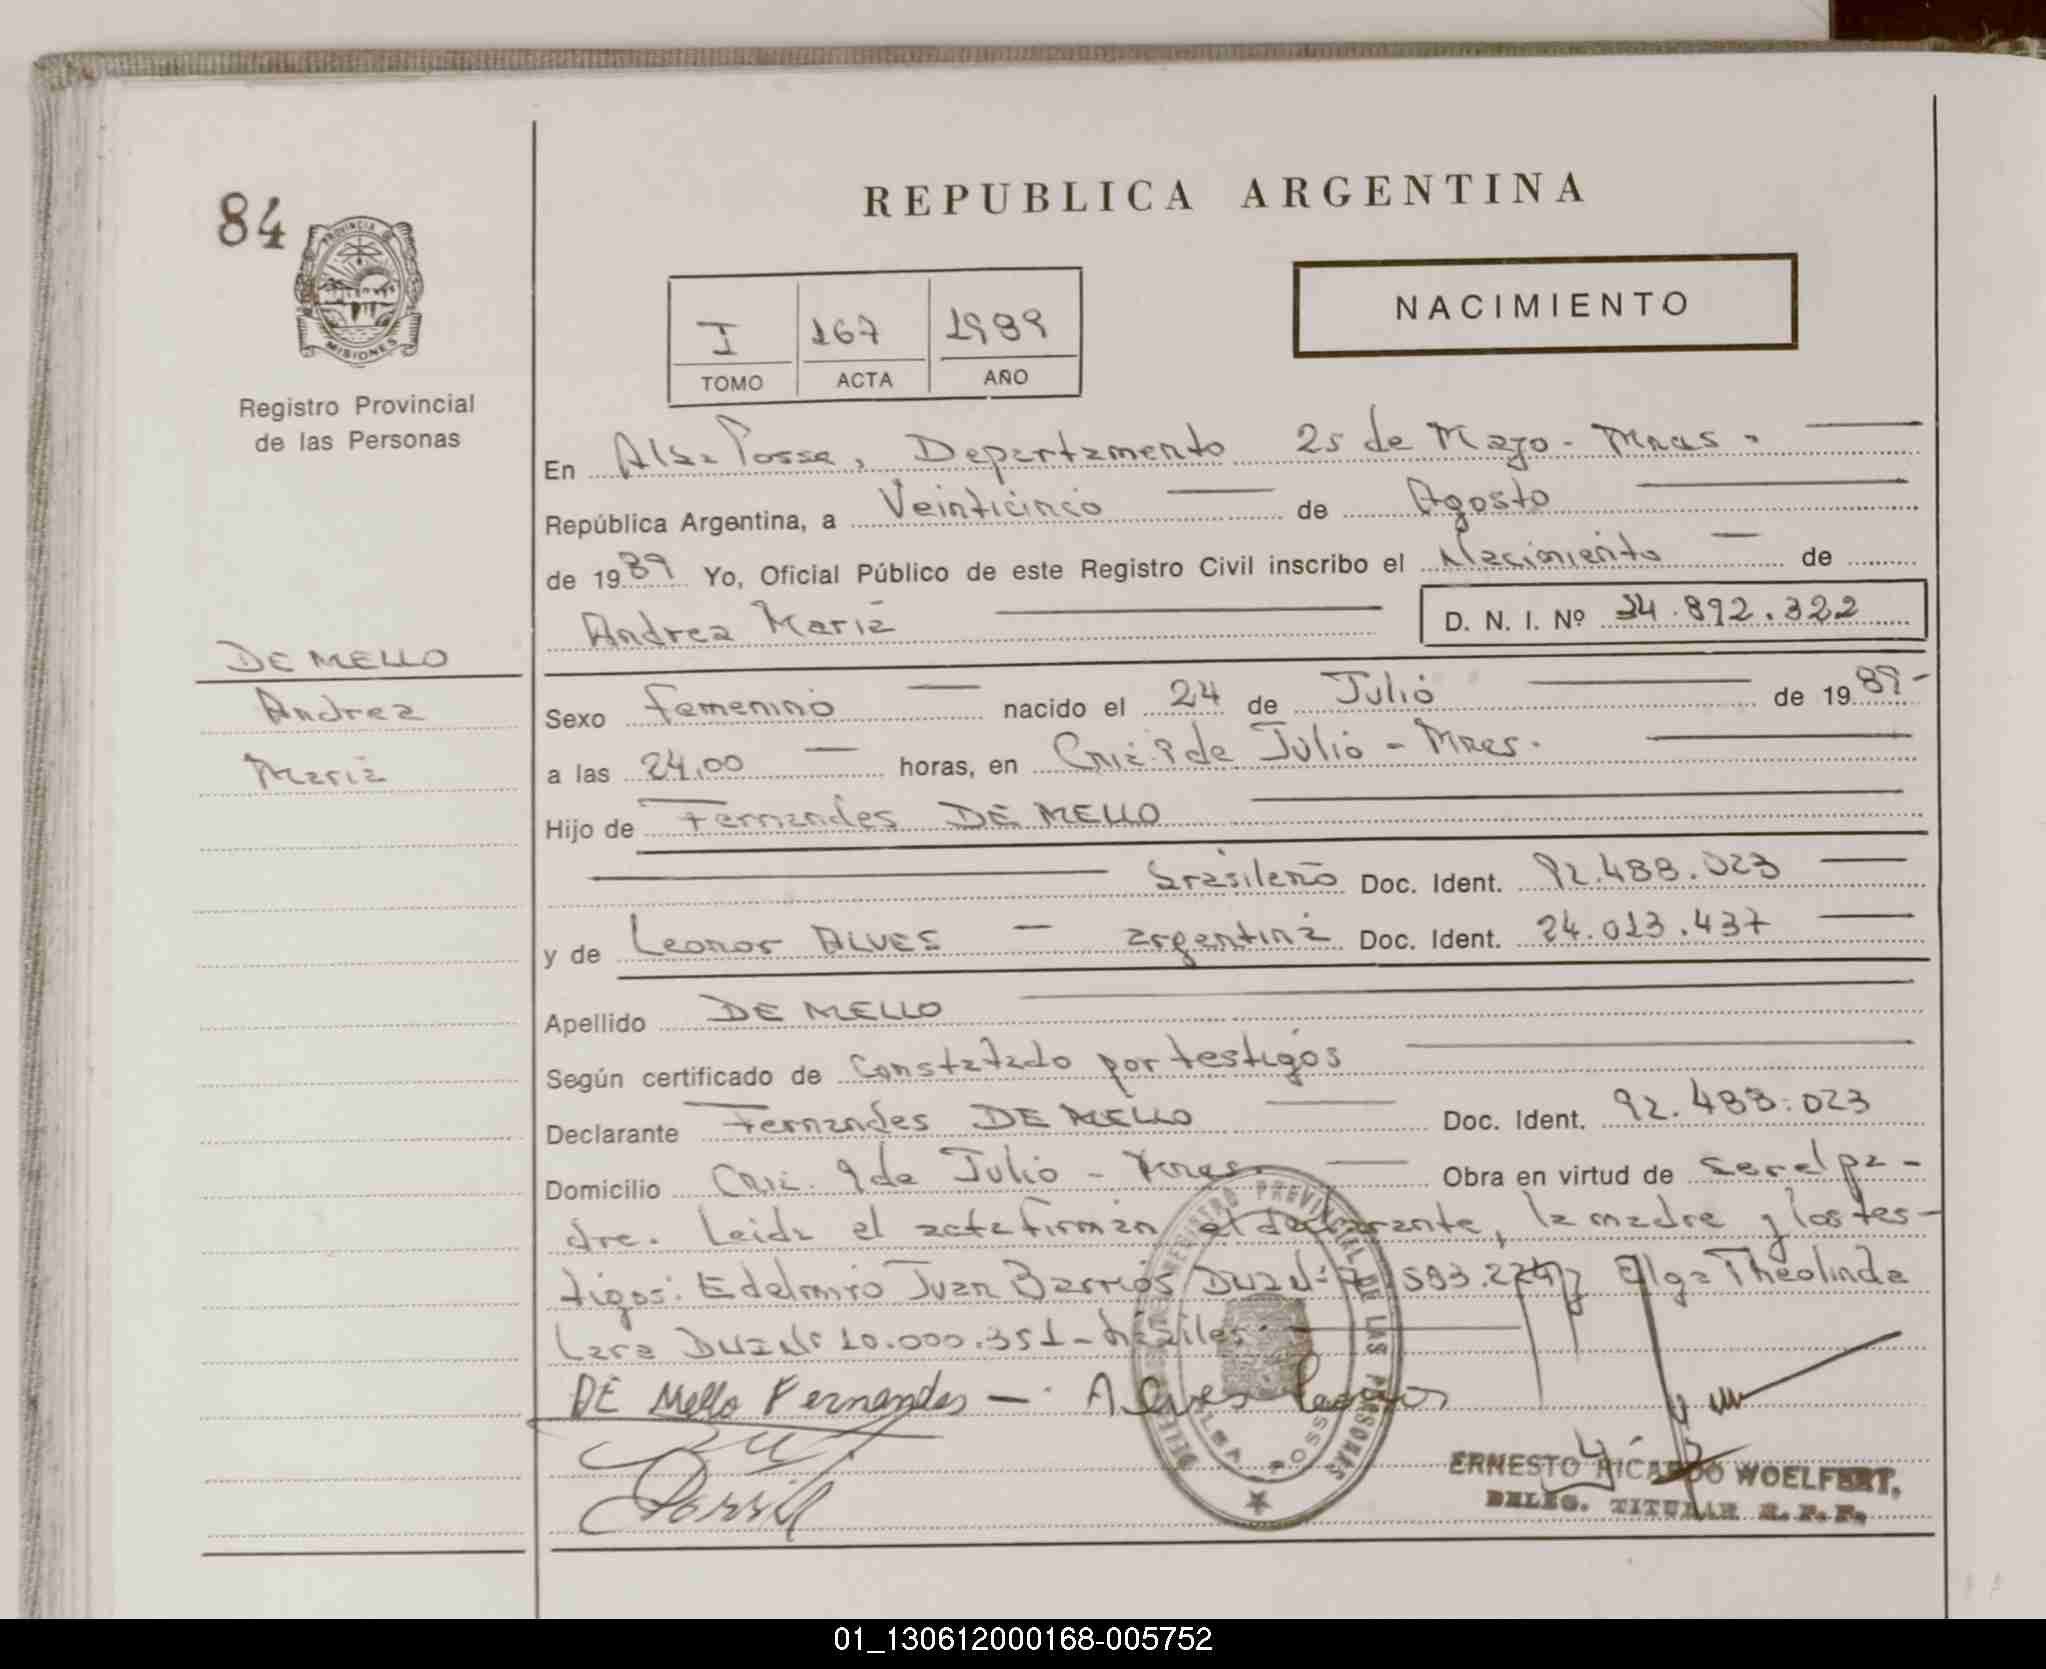 84
PROVINCIA DE
MISIONES
Registro Provincial
de las Personas
REPUBLICA ARGENTINA
NACIMIENTO
I 167 1989
TOMO ACTA AÑO
En Alba Posse, Departamento 25 de Mayo - Mnes -
República Argentina, a Veinticinco de Agosto
de 1989 Yo, Oficial Público de este Registro Civil inscribo el Nacimiento de
Andrea María
D. N. I. Nº 34.892.322
DE MELLO
Andrea
María
Sexo femenino nacido el 24 de Julio de 1989-
a las 24,00 horas, en Cnia. 9 de Julio - Mnes.
Hijo de Fernandes DE MELLO
brasileño Doc. Ident. 92.488.023
y de Leonor ALVES argentina Doc. Ident. 24.013.437
Apellido DE MELLO
Según certificado de Constatado por testigos
Declarante Fernandes DE MELLO Doc. Ident. 92.488.023
Domicilio Cnia. 9 de Julio - Mnes. Obra en virtud de ser el pa-
dre. Leida el acta firman el declarante, la madre y los tes-
tigos: Edelmiro Juan Barrios DU2 Nº 593.22 y Olga Theolinda
Lara DU2 Nº 10.000.351 - hábiles.
DE Mello Fernandes - Alves Leonor
REGISTRO PROVINCIAL DE LAS PERSONAS
ALBA POSSE
ERNESTO RICARDO WOELFERT,
DELEG. TITULAR R. P. P.
01_130612000168-005752